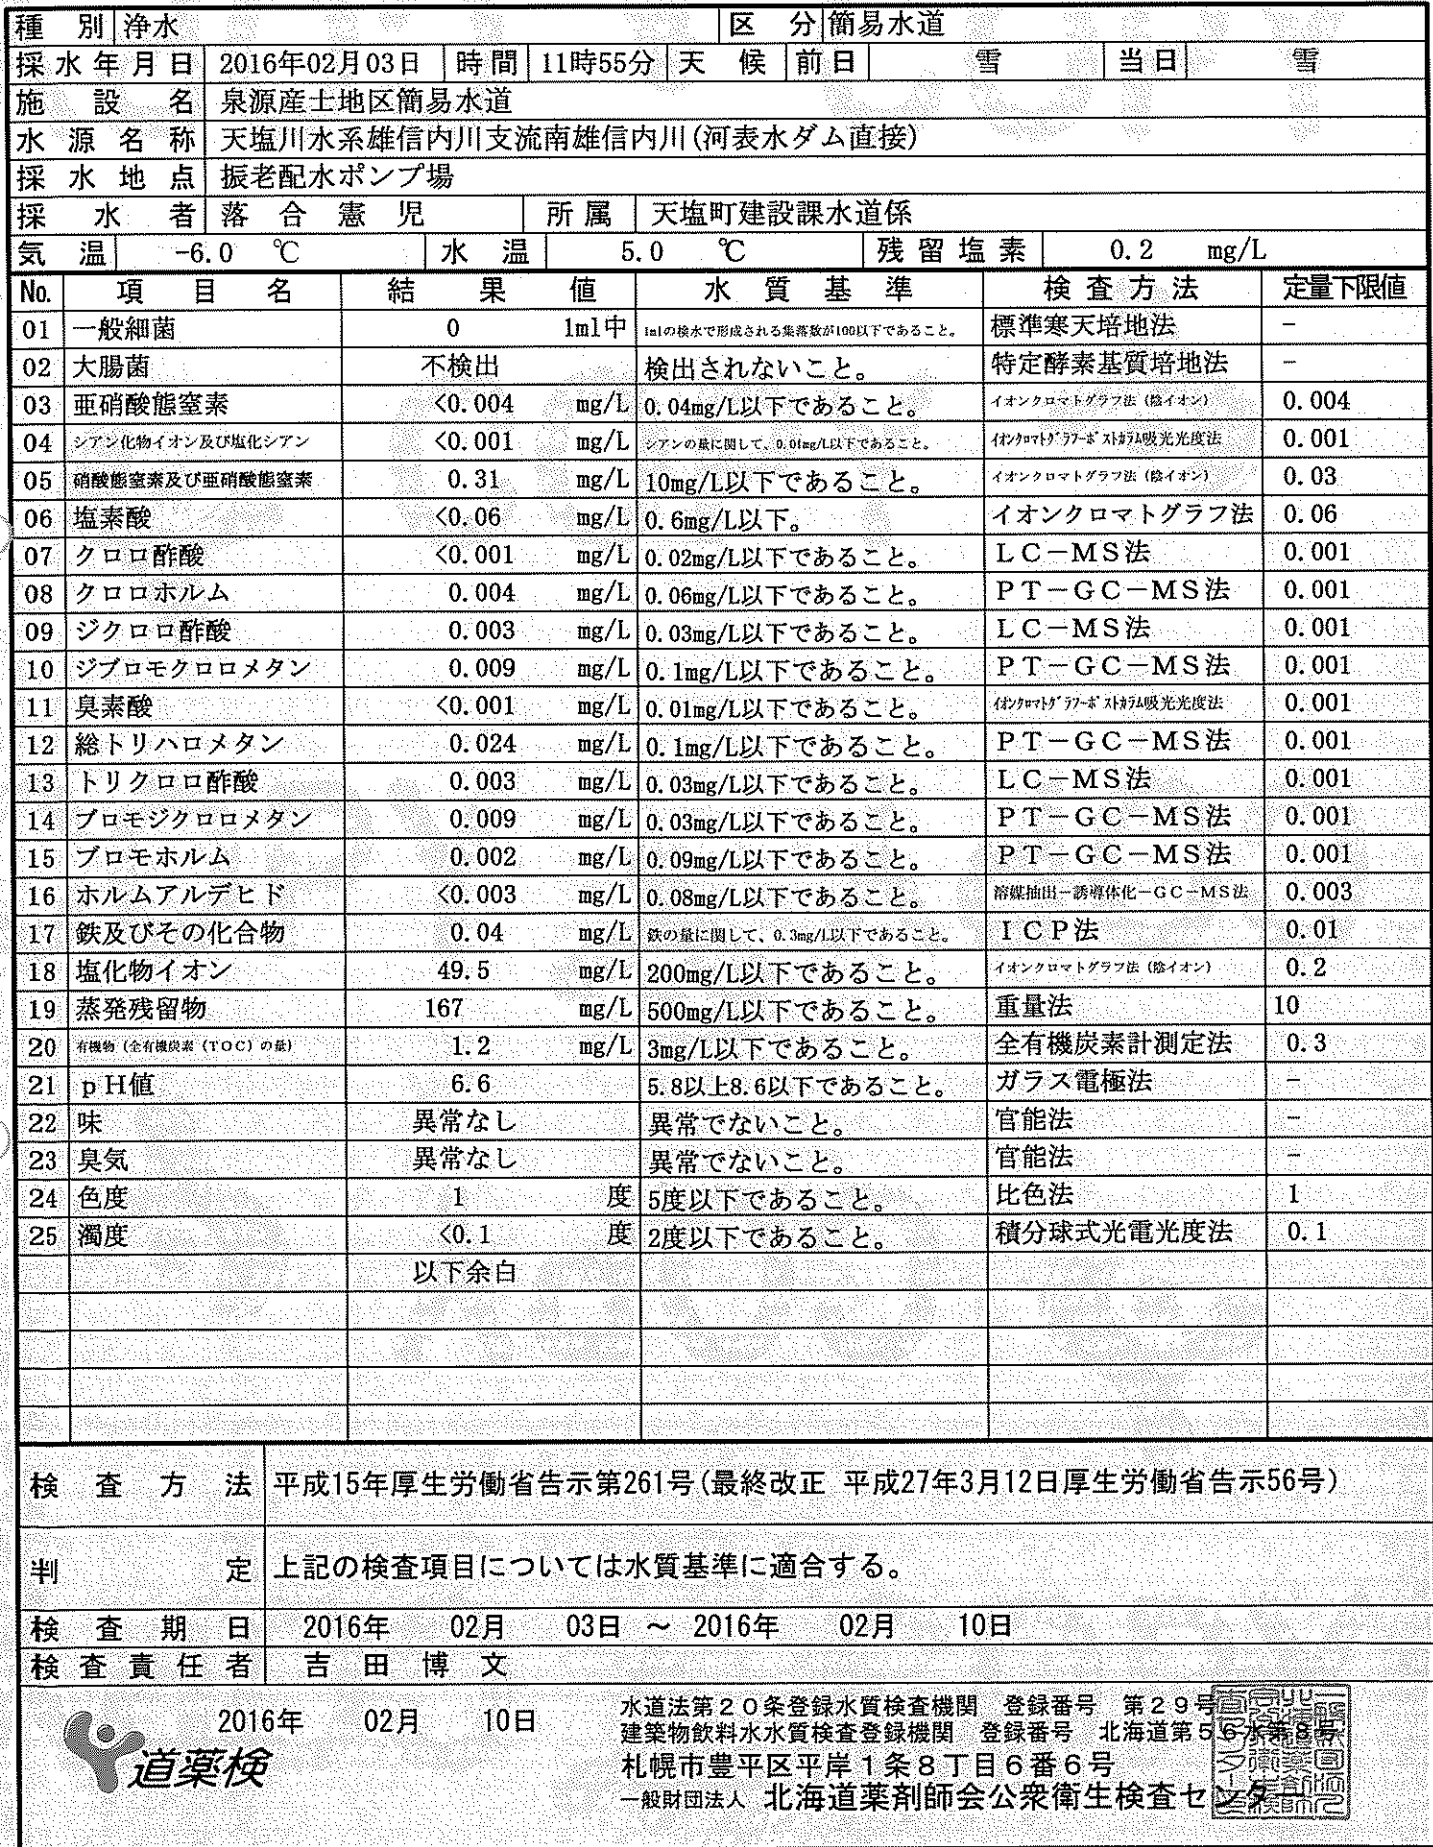 種 別 浄水 区 分 簡易水道
採水年月日 2016年02月03日 時間 11時55分 天 候 前日 雪 当日 雪
施 設 名 泉源産士地区簡易水道
水 源 名 称 天塩川水系雄信内川支流南雄信内川(河表水ダム直接)
採 水 地 点 振老配水ポンプ場
採 水 者 落 合 憲 児 所 属 天塩町建設課水道係
気 温 -6.0 ℃ 水 温 5.0 ℃ 残 留 塩 素 0.2 mg/L
No. 項 目 名 結 果 値 水 質 基 準 検 査 方 法 定量下限値
01 一般細菌 0 1ml中 1mlの検水で形成される集落数が100以下であること。 標準寒天培地法 -
02 大腸菌 不検出 検出されないこと。 特定酵素基質培地法 -
03 亜硝酸態窒素 <0.004 mg/L 0.04mg/L以下であること。 イオンクロマトグラフ法(陰イオン) 0.004
04 シアン化物イオン及び塩化シアン <0.001 mg/L シアンの量に関して、0.01mg/L以下であること。 イオンクロマトグラフ-ポストカラム吸光光度法 0.001
05 硝酸態窒素及び亜硝酸態窒素 0.31 mg/L 10mg/L以下であること。 イオンクロマトグラフ法(陰イオン) 0.03
06 塩素酸 <0.06 mg/L 0.6mg/L以下。 イオンクロマトグラフ法 0.06
07 クロロ酢酸 <0.001 mg/L 0.02mg/L以下であること。 LC-MS法 0.001
08 クロロホルム 0.004 mg/L 0.06mg/L以下であること。 PT-GC-MS法 0.001
09 ジクロロ酢酸 0.003 mg/L 0.03mg/L以下であること。 LC-MS法 0.001
10 ジブロモクロロメタン 0.009 mg/L 0.1mg/L以下であること。 PT-GC-MS法 0.001
11 臭素酸 <0.001 mg/L 0.01mg/L以下であること。 イオンクロマトグラフ-ポストカラム吸光光度法 0.001
12 総トリハロメタン 0.024 mg/L 0.1mg/L以下であること。 PT-GC-MS法 0.001
13 トリクロロ酢酸 0.003 mg/L 0.03mg/L以下であること。 LC-MS法 0.001
14 ブロモジクロロメタン 0.009 mg/L 0.03mg/L以下であること。 PT-GC-MS法 0.001
15 ブロモホルム 0.002 mg/L 0.09mg/L以下であること。 PT-GC-MS法 0.001
16 ホルムアルデヒド <0.003 mg/L 0.08mg/L以下であること。 溶媒抽出-誘導体化-GC-MS法 0.003
17 鉄及びその化合物 0.04 mg/L 鉄の量に関して、0.3mg/L以下であること。 ICP法 0.01
18 塩化物イオン 49.5 mg/L 200mg/L以下であること。 イオンクロマトグラフ法(陰イオン) 0.2
19 蒸発残留物 167 mg/L 500mg/L以下であること。 重量法 10
20 有機物(全有機炭素(TOC)の量) 1.2 mg/L 3mg/L以下であること。 全有機炭素計測定法 0.3
21 pH値 6.6 5.8以上8.6以下であること。 ガラス電極法 -
22 味 異常なし 異常でないこと。 官能法 -
23 臭気 異常なし 異常でないこと。 官能法 -
24 色度 1 度 5度以下であること。 比色法 1
25 濁度 <0.1 度 2度以下であること。 積分球式光電光度法 0.1
以下余白
検 査 方 法 平成15年厚生労働省告示第261号(最終改正 平成27年3月12日厚生労働省告示56号)
判 定 上記の検査項目については水質基準に適合する。
検 査 期 日 2016年 02月 03日 ～ 2016年 02月 10日
検 査 責 任 者 吉 田 博 文
2016年 02月 10日
道薬検
水道法第20条登録水質検査機関 登録番号 第29号
建築物飲料水水質検査登録機関 登録番号 北海道第56水第8号
札幌市豊平区平岸1条8丁目6番6号
一般財団法人 北海道薬剤師会公衆衛生検査センター